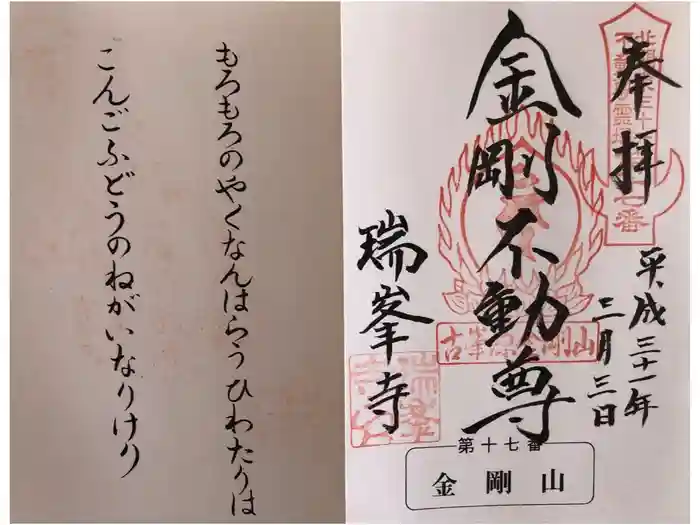 奉拝
平成三十一年
二月三日
金剛不動尊
瑞峯寺
古峯原金剛山
第十七番
金剛山
もろもろのやくなんはらうひわたりは
こんごふどうのねがいなりけり